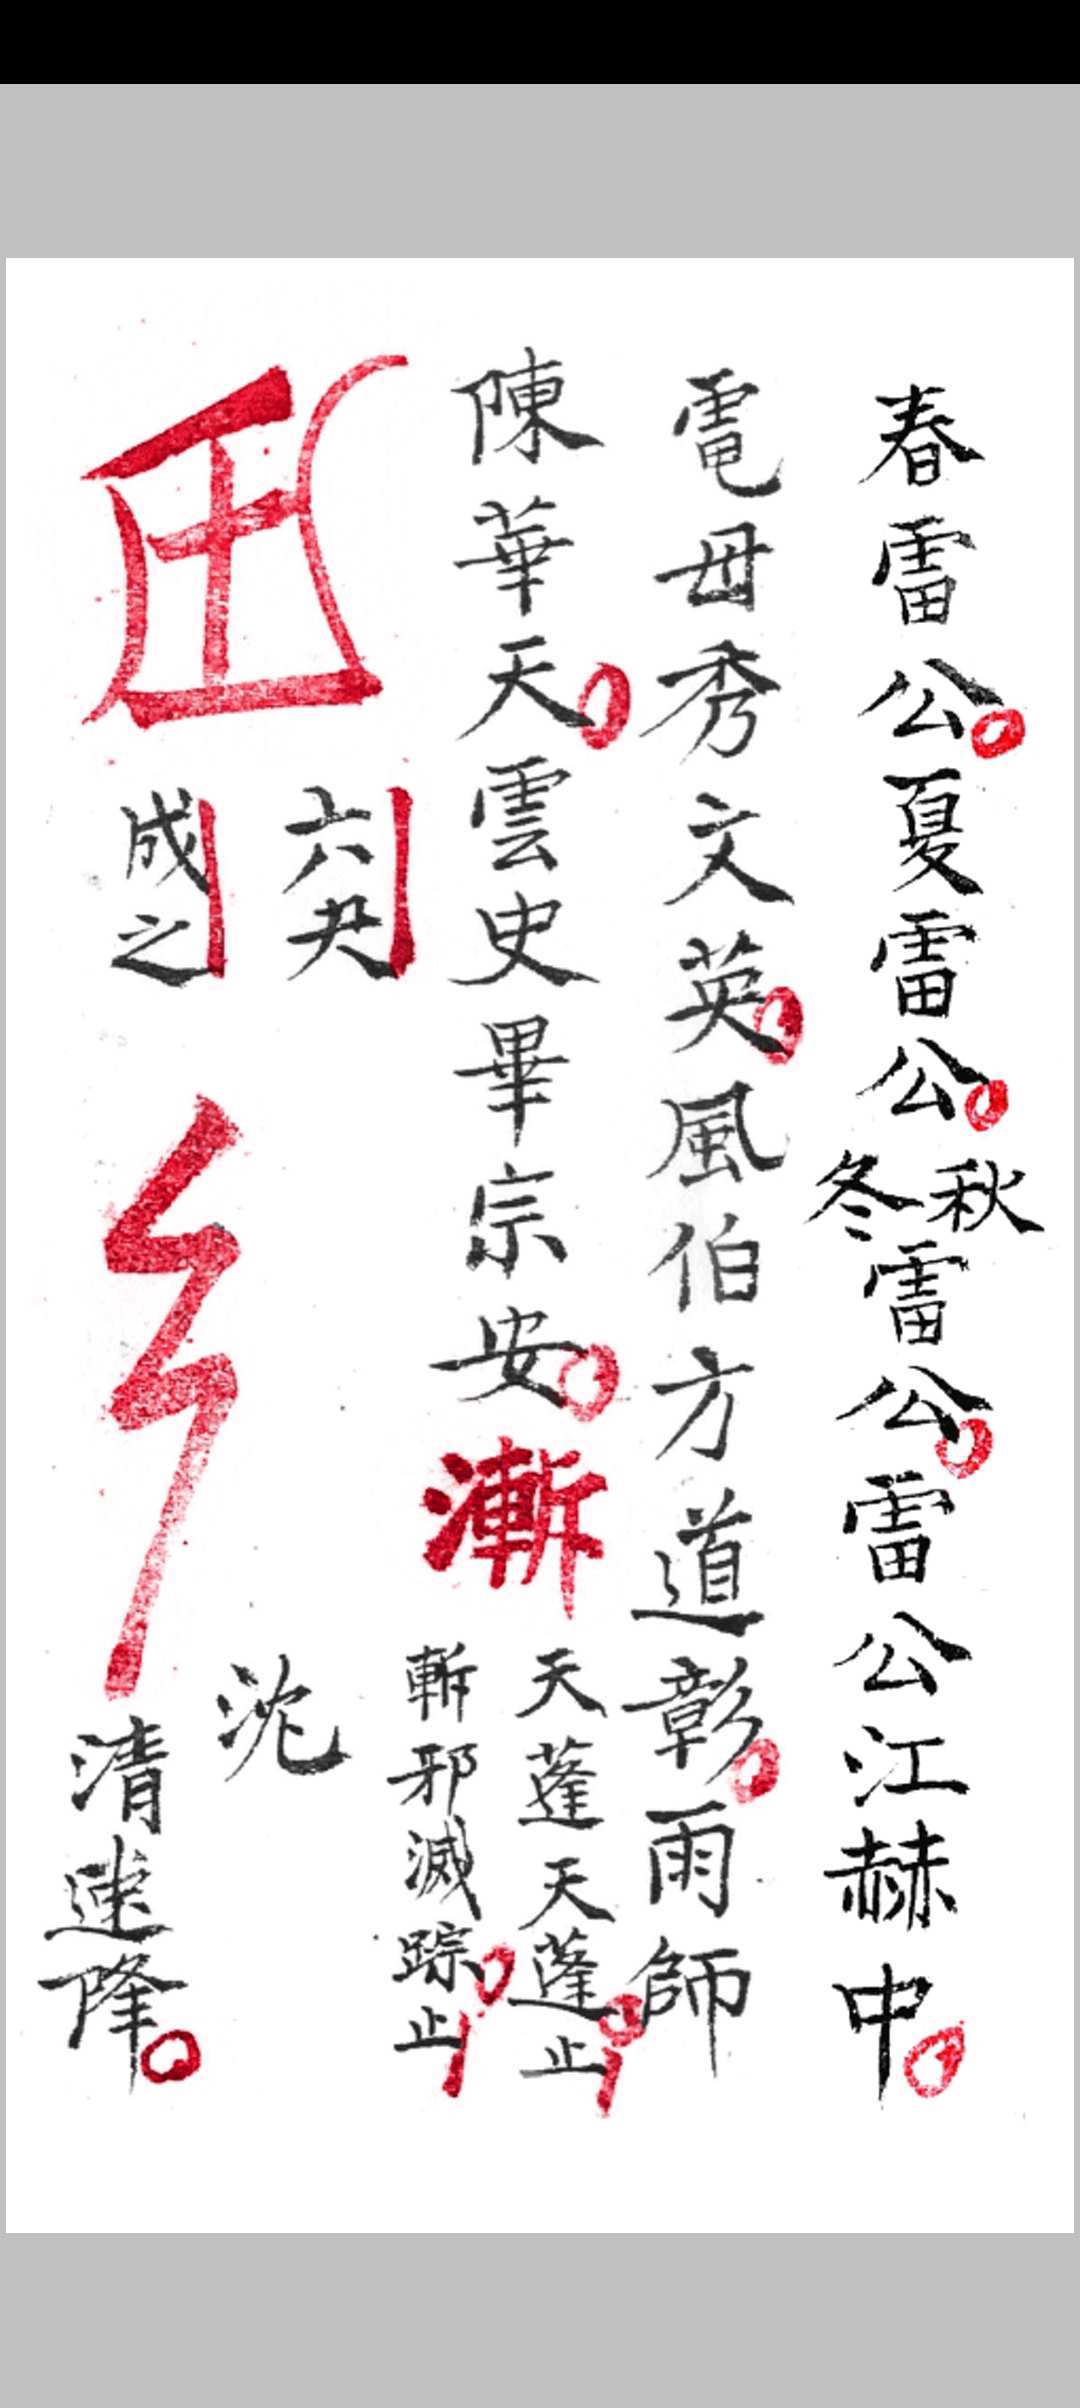 春雷公夏雷公秋冬雷公雷公江赫中
電母秀文英風伯方道彰雨師
陳華天雲史畢宗安
漸
天蓬天蓬止
斬邪滅踪止
六尹
成之
沈
清速隆